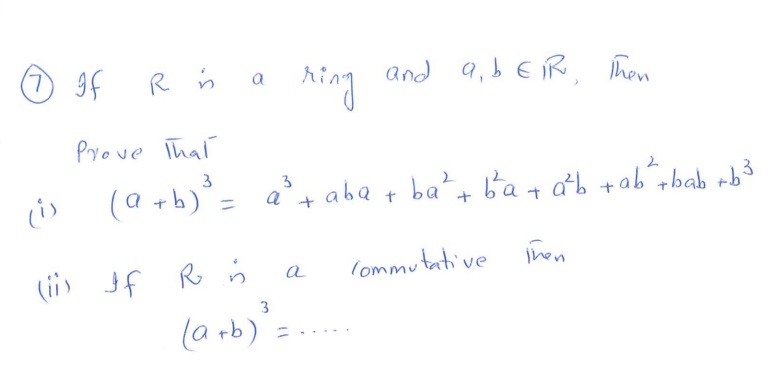 ⑦ If R is a ring and a, b ∈ R, Then
Prove That
(i) (a + b)³ = a³ + aba + ba² + b²a + a²b + ab² + bab + b³
(ii) If R is a commutative Then
(a + b)³ = .....